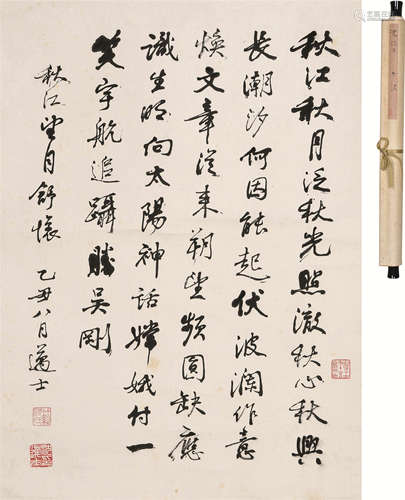 秋江秋月泛秋光照澈秋心秋興
長潮汐何因能起伏波瀾作意
煥文章從來朔望頻圓缺應
識生明向太陽神話嫦娥付一
笑宇航追躡勝吳剛
秋江望月舒懷 乙丑八月邁士